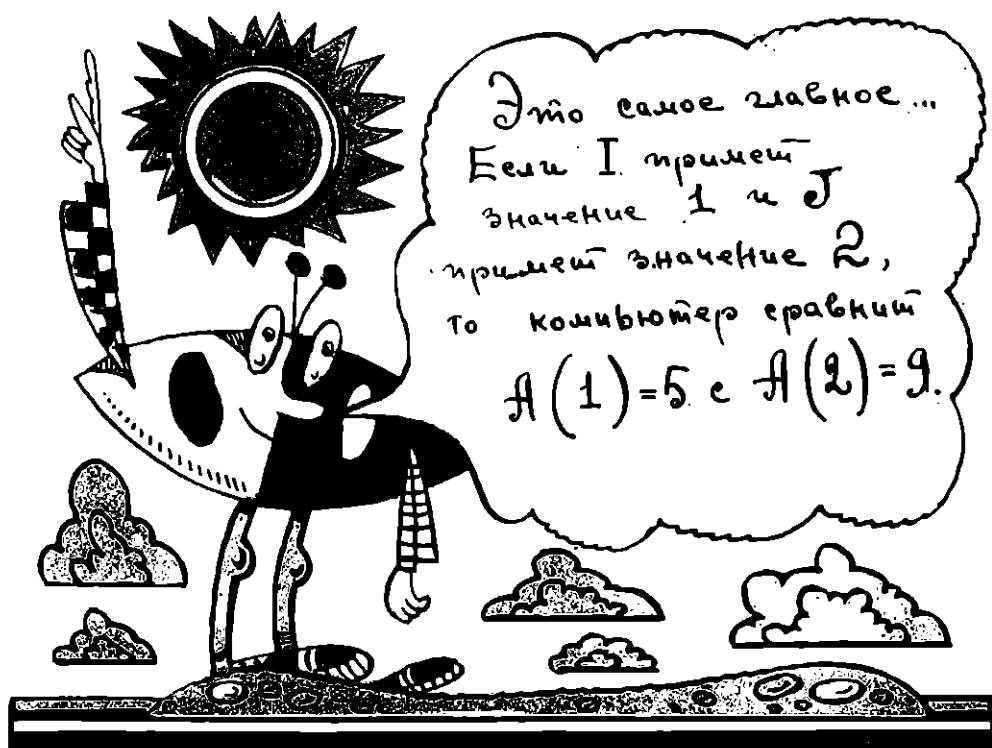 Это самое главное...
Если I примет
значение 1 и J
примет значение 2,
то компьютер сравнит
A(1)=5 с A(2)=9.